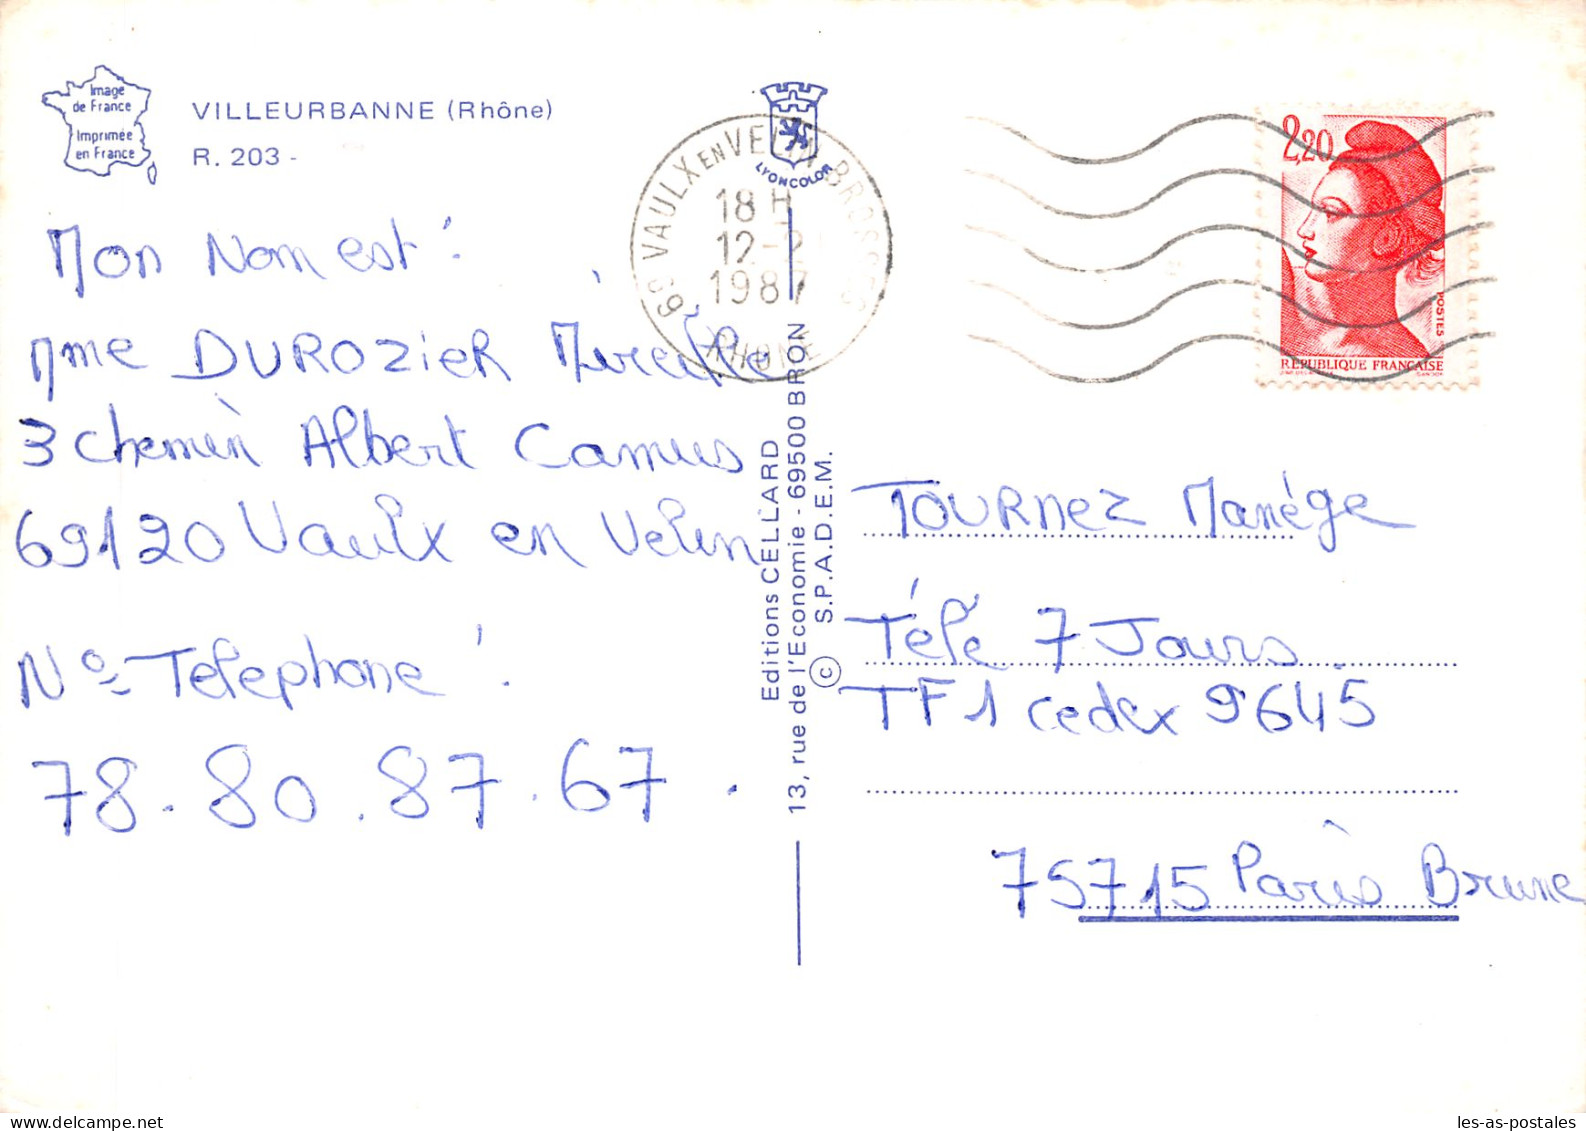 Image
de France
Imprimée
en France
VILLEURBANNE (Rhône)
R. 203 -
LYONCOLOR
69 VAULX EN VELIN BROSSES
18 H
12-2
1987
RHONE
2,20
POSTES
REPUBLIQUE FRANÇAISE
Mon Nom est :
Mme DUROZIER Mireille
3 chemin Albert Camus
69120 Vaulx en Velin
N° Telephone :
78.80.87.67.
Editions CELLARD
13, rue de l'Economie - 69500 BRON
S.P.A.D.E.M.
©
TOURNEZ Manége
Télé 7 Jours
TF1 cedex 9645
75715 Paris Brune
les-as-postales
www.delcampe.net